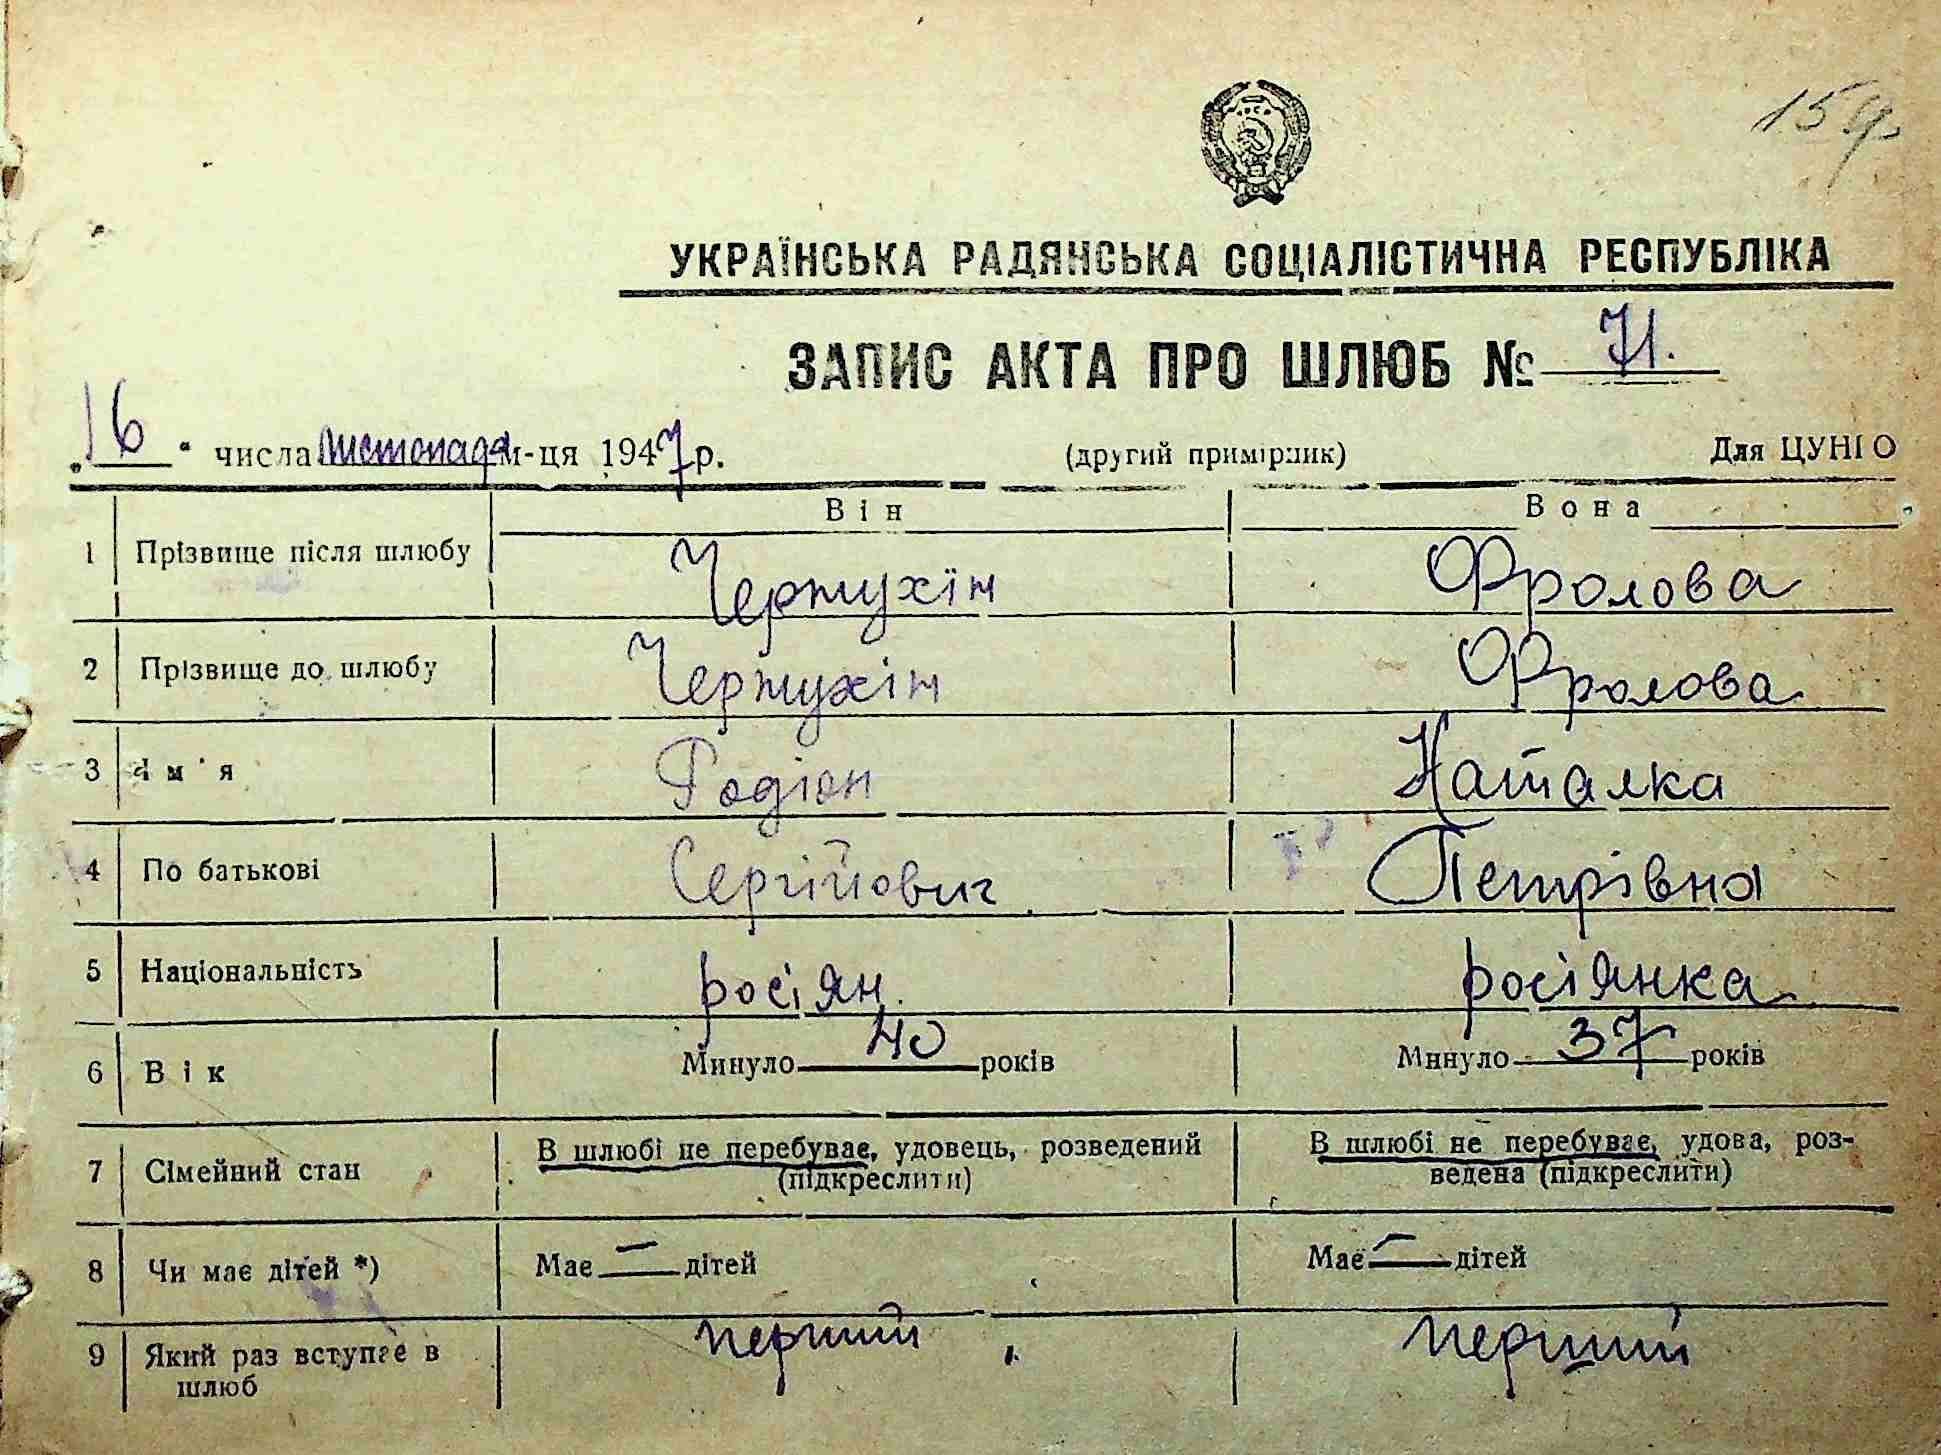 159
УКРАЇНСЬКА РАДЯНСЬКА СОЦІАЛІСТИЧНА РЕСПУБЛІКА
ЗАПИС АКТА ПРО ШЛЮБ № 71.
„16“ числа листопада м-ця 1947 р. (другий примірник) Для ЦУНГО
Він Вона
1 Прізвище після шлюбу Чертухін Фролова
2 Прізвище до шлюбу Чертухін Фролова
3 Ім'я Родіон Наталка
4 По батькові Сергійович Петрівна
5 Національність росіян. росіянка
6 Вік Минуло 40 років Минуло 37 років
7 Сімейний стан В шлюбі не перебуває, удовець, розведений В шлюбі не перебуває, удова, роз-
(підкреслити) ведена (підкреслити)
8 Чи має дітей *) Має — дітей Має — дітей
9 Який раз вступає в перший перший
шлюб